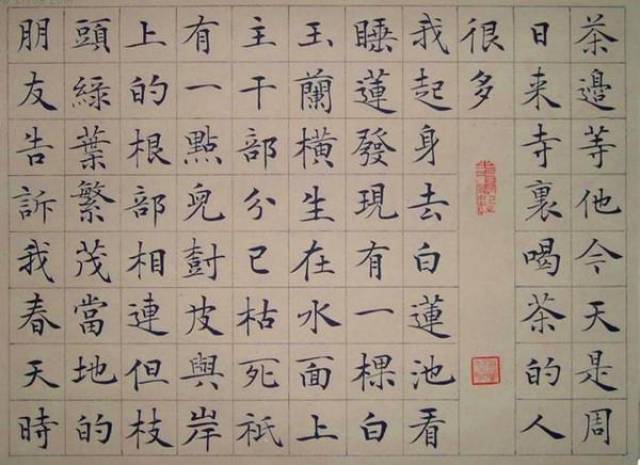 茶邊等他今天是周
日来寺裏喝茶的人
很多
我起身去白蓮池看
睡蓮發現有一棵白
玉蘭橫生在水面上
主干部分已枯死祇
有一點兒尌皮與岸
上的根部相連但枝
頭綠葉繁茂當地的
朋友告訴我春天時